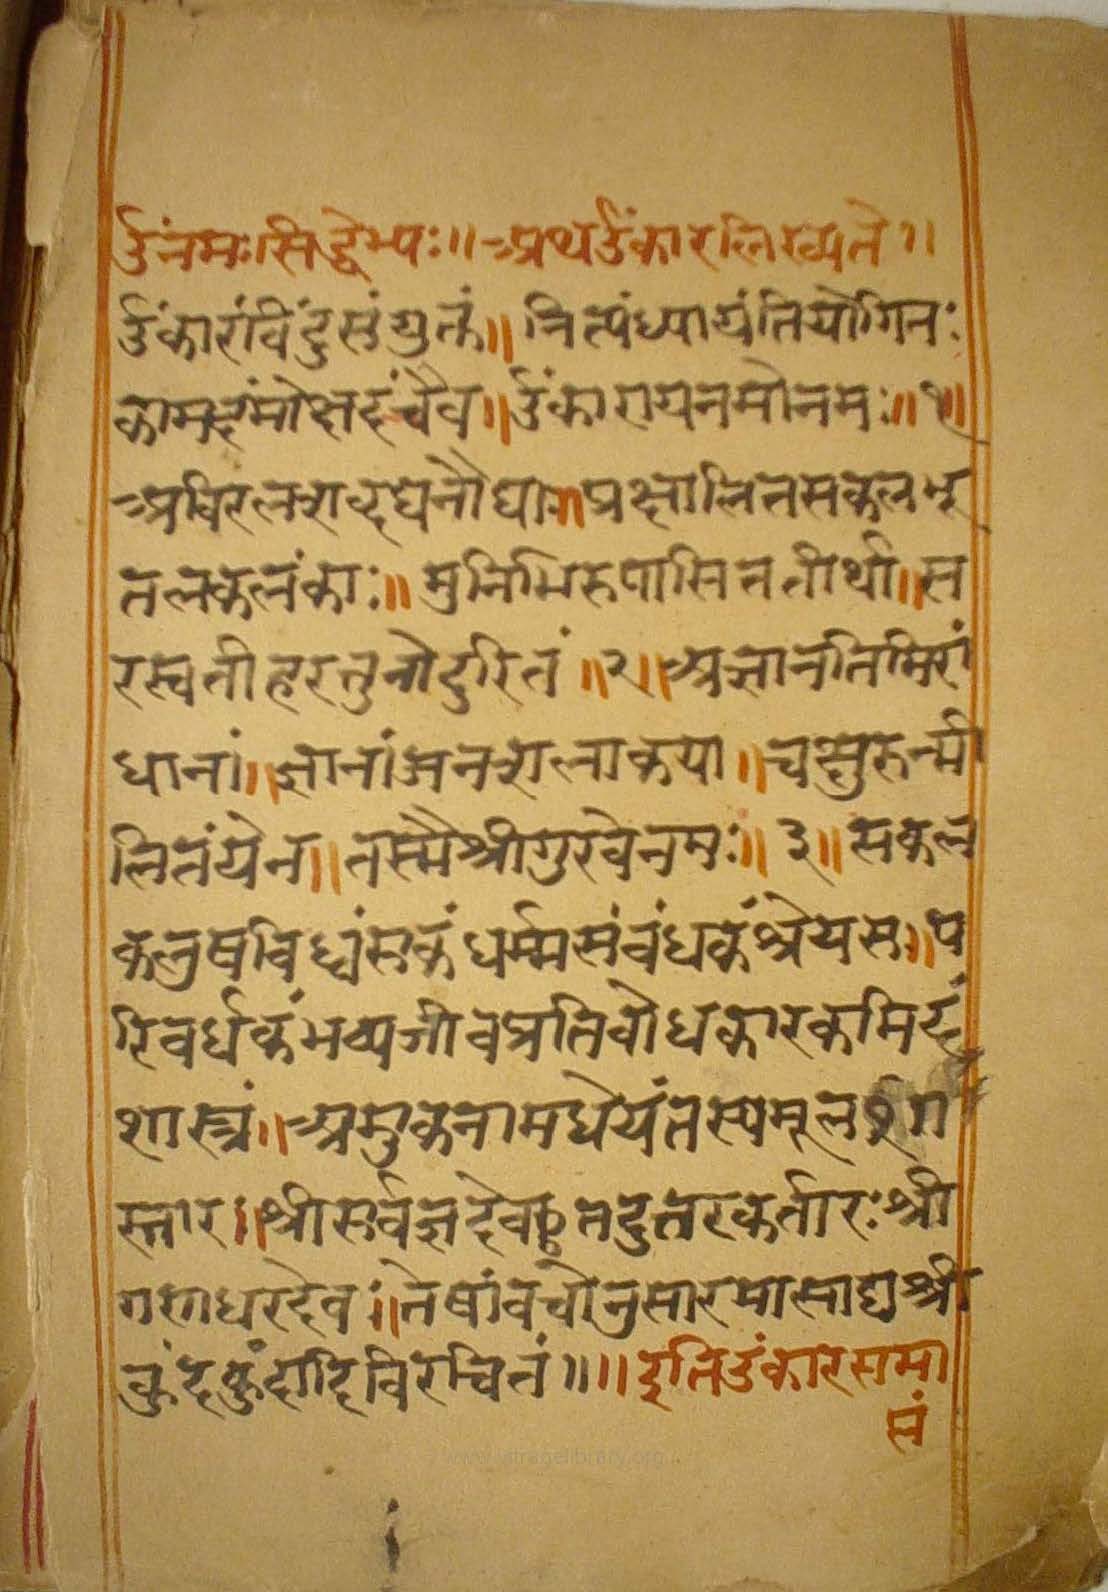 ॐनमःसिद्धेभ्यः॥अथॐकारलिख्यते॥
ॐकारंविंदुसंयुक्तं॥नित्यंध्यायंतियोगिनः
कामदंमोक्षदंचैव॥ॐकारायनमोनमः॥१॥
अविरलशब्दघनौघा॥प्रक्षालितसकलभू
तलकलंकाः॥मुनिभिरुपासिततीर्था॥स
रस्वतीहरतुनोदुरितं॥२॥अज्ञानतिमिरां
धानां॥ज्ञानांजनशलाकया॥चक्षुरुन्मी
लितंयेन॥तस्मैश्रीगुरवेनमः॥३॥सकल
कलुषविध्वंसकंधर्म्मसंबंधकंश्रेयस॥प
रिवर्धकंभव्यजीवप्रतिबोधकारकमिदं
शास्त्रं॥अमुकनामधेयंतस्यमूलग्रंग
स्तार॥श्रीसर्वज्ञदेवछतदुत्तरकर्तारःश्री
गणधरदेवः॥तेषांवचोनुसारमासाद्यश्री
कुंदकुंदादिविरचितं॥॥इतिॐकारसमा
प्तं
www.jatragelibrary.org